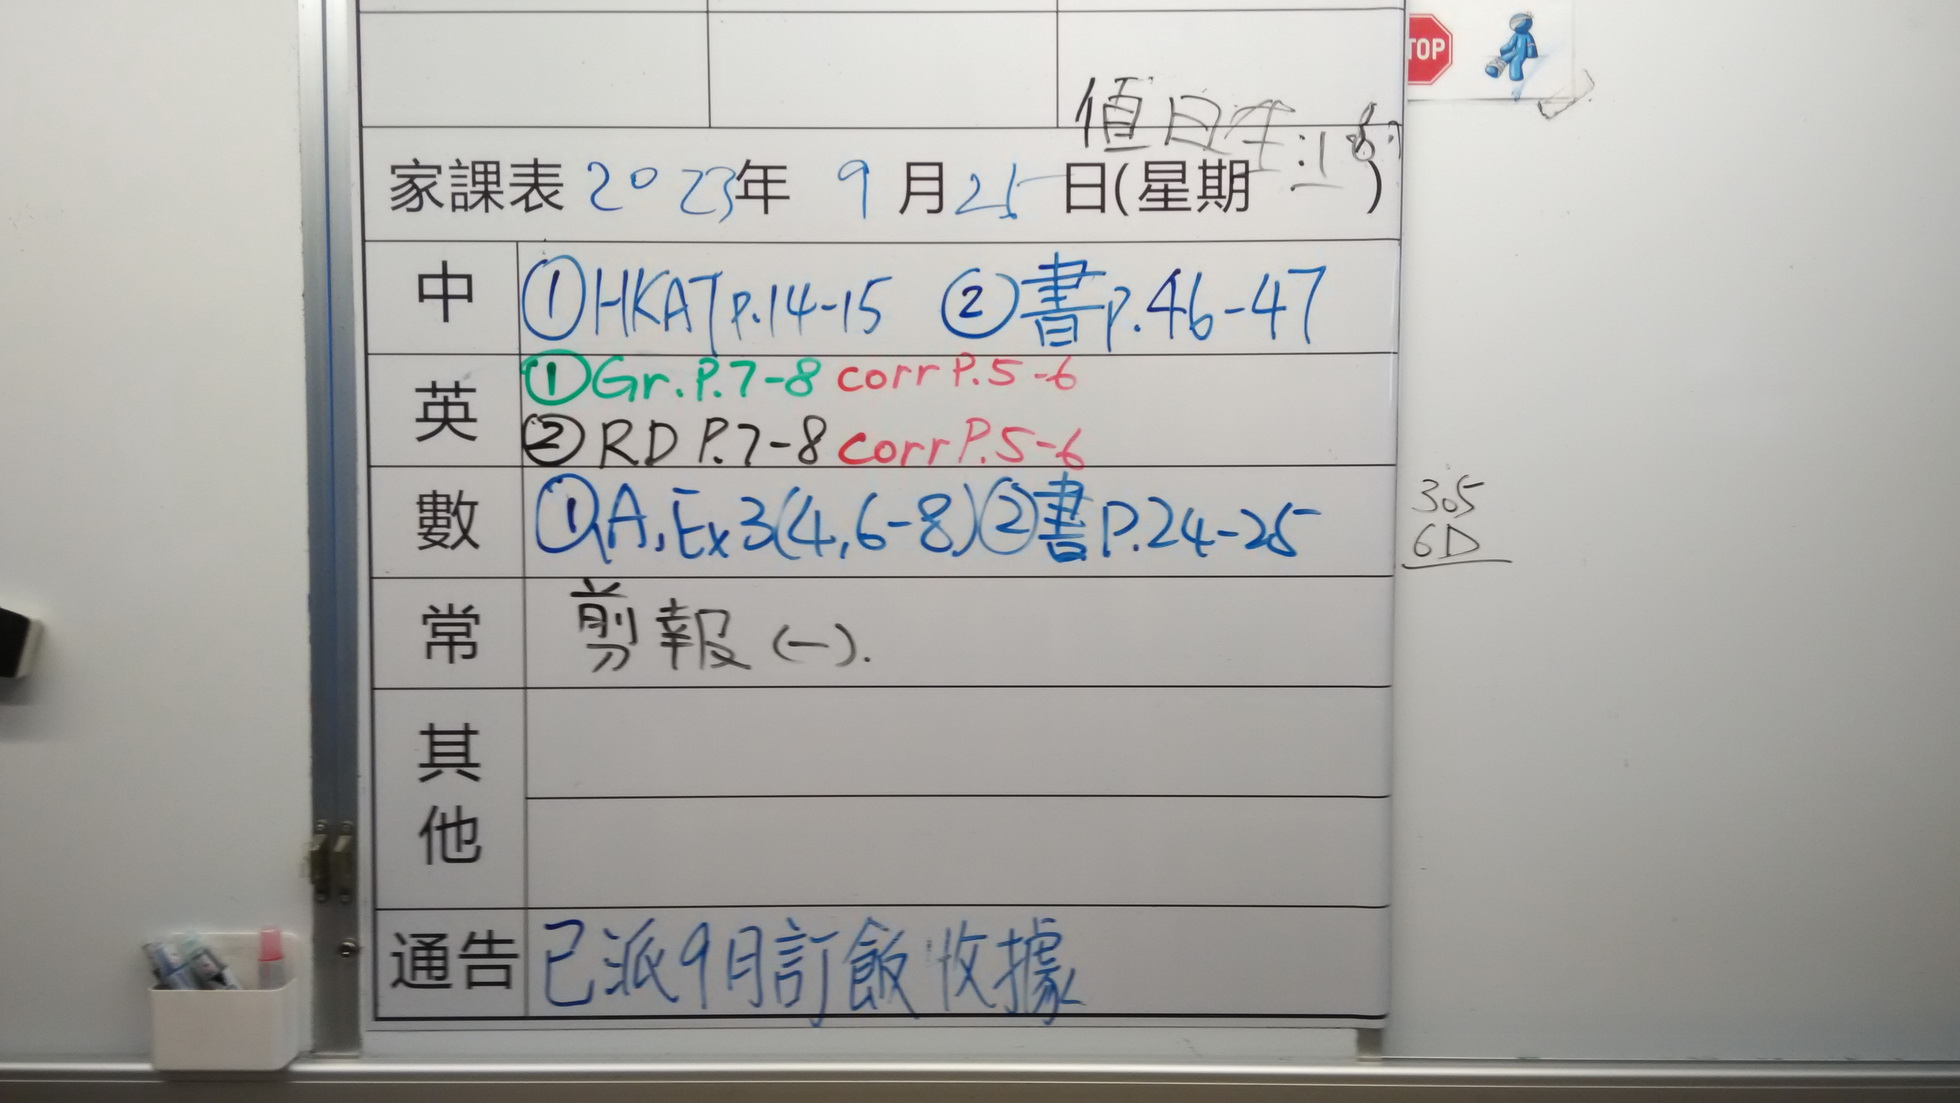 TOP
值日生:1
家課表 2023年 9月25日(星期一)
中 ①HKAT p.14-15 ②書p.46-47
英 ①Gr.P.7-8 corr P.5-6
②RD P.7-8 corr P.5-6
數 ①A,Ex3(4,6-8)②書P.24-25
305
6D
常 剪報(一).
其他
通告 已派9月訂飯收據